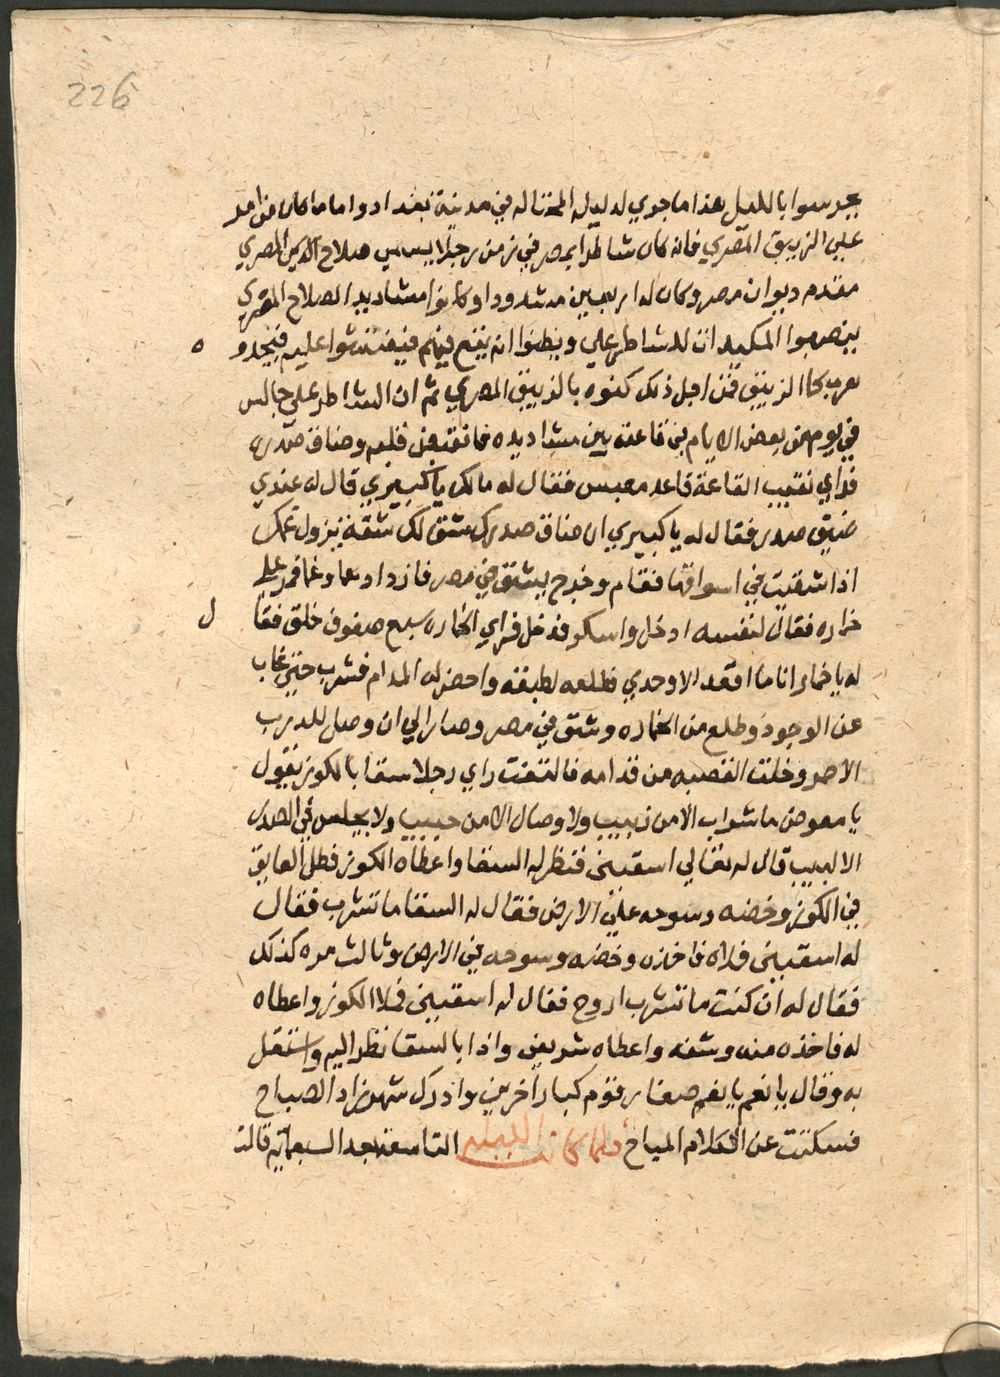 226
يحرسوا بالليل هذا ما جري لدليله المحتاله في مدينة بغداد واما ما كان من امر
علي الزيبق المصري فانه كان شاطرا بمصر في زمن رجلا يسمي صلاح الدين المصري
مقدم ديوان مصر وكان له اربعين مشدودا وكانوا مشاديد الصلاح المصري
ينصبوا المكيدات للشاطر علي ويظنوا انه يقع فيهم فيفتشوا عليه فيجدوه
هرب كما الزيبق فمن اجل ذلك كنوه بالزيبق المصري ثم ان الشاطر علي جالس
في يوم من بعض الايام في قاعته بين مشاديده فانقبض قلبه وضاق صدره
فراي نقيب القاعة قاعد معبس فقال له مالك يا كبيري قال له عندي
ضيق صدر فقال له يا كبيري ان ضاق صدرك شق لك شقة يزول غمك
اذا شقيت في اسواقها فقام وخرج يشق في مصر فازداد هما وغما فمر علي
خماره فقال لنفسه ادخل واسكر فدخل فراي الخماره سبع صفوف خلق فقال
له يا خمار انا ما اقعد الا وحدي فطلعه لطبقه واحضر له المدام فشرب حتي غاب
عن الوجود وطلع من الخماره وشق في مصر وصار الي ان وصل للدرب
الاحمر وخلت القصبه من قدامه فالتفت راي رجلا سقا بالكوز يقول
يا معوض ما شراب الا من زبيب ولا وصال الا من حبيب ولا يجلس في الصدر
الا لبيب قال له تعالي اسقيني فنظر له السقا واعطاه الكوز فطل العايق
في الكوز وخضه وسوحه علي الارض فقال له السقا ما تشرب فقال
له اسقيني فملاه فاخذه وخضه وسوحه في الارض وثالث مره كذلك
فقال له ان كنت ما تشرب اروح فقال له اسقيني فملا الكوز واعطاه
له فاخذه منه وشفه واعطاه شريفي واذا بالسقا نظر اليه واستقل
به وقال يا نعم يا نعم صغار قوم كبار اخرين وادرك شهرزاد الصباح
فسكتت عن الكلام المباح فلما كانت الليله التاسعة بعد السبعمايه قالت